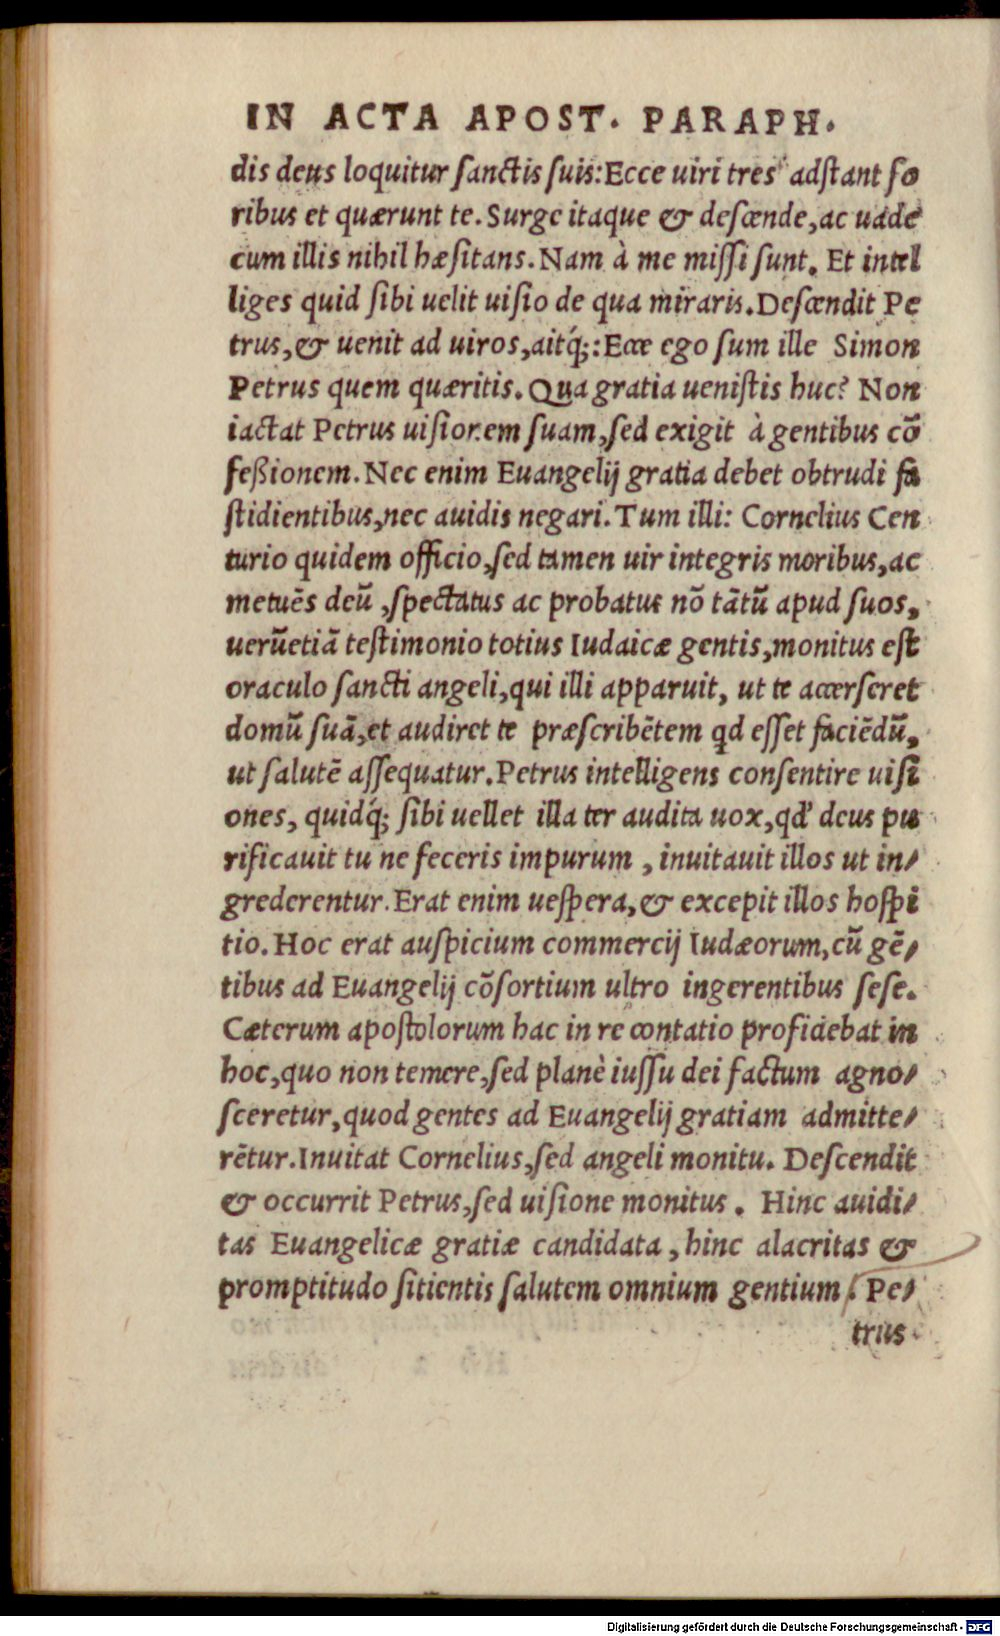 IN ACTA APOST. PARAPH.
dis deus loquitur sanctis suis: Ecce uiri tres adstant fo
ribus et quærunt te. Surge itaque & descende, ac uade
cum illis nihil hæsitans. Nam à me missi sunt. Et intel
liges quid sibi uelit uisio de qua miraris. Descendit Pe
trus, & uenit ad uiros, aitq́;: Ecce ego sum ille Simon
Petrus quem quæritis. Qua gratia uenistis huc? Non
iactat Petrus uisionem suam, sed exigit à gentibus cõ
feßionem. Nec enim Euangelij gratia debet obtrudi fa
stidientibus, nec auidis negari. Tum illi: Cornelius Cen
turio quidem officio, sed tamen uir integris moribus, ac
metuẽs deũ, spectatus ac probatus nõ tãtũ apud suos,
uerũetiã testimonio totius Iudaicæ gentis, monitus est
oraculo sancti angeli, qui illi apparuit, ut te accerseret
domũ suã, et audiret te præscribẽtem qd esset faciẽdũ,
ut salutẽ assequatur. Petrus intelligens consentire uisi
ones, quidq́; sibi uellet illa ter audita uox, qd' deus pu
rificauit tu ne feceris impurum, inuitauit illos ut in/
grederentur. Erat enim uespera, & excepit illos hospi
tio. Hoc erat auspicium commercij Iudæorum, cũ gẽ/
tibus ad Euangelij cõsortium ultro ingerentibus sese.
Cæterum apostolorum hac in re contatio proficiebat in
hoc, quo non temere, sed planè iussu dei factum agno/
sceretur, quod gentes ad Euangelij gratiam admitte/
rẽtur. Inuitat Cornelius, sed angeli monitu. Descendit
& occurrit Petrus, sed uisione monitus. Hinc auidi/
tas Euangelicæ gratiæ candidata, hinc alacritas &
promptitudo sitientis salutem omnium gentium. Pe/
trus
Digitalisierung gefördert durch die Deutsche Forschungsgemeinschaft - DFG